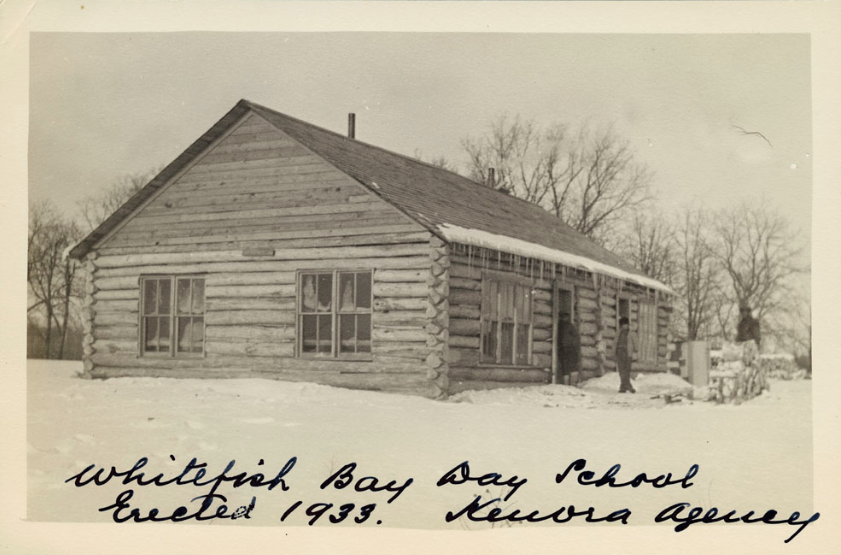 Whitefish Bay Day School
Erected 1933. Kenora Agency